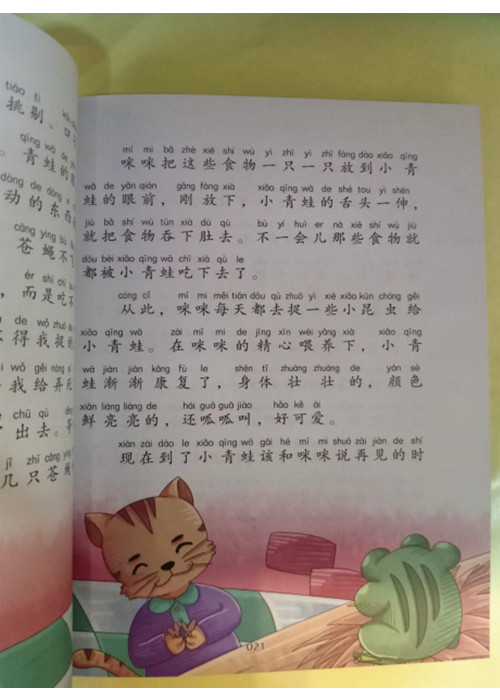 tiāo tì
挑剔、口
qīng wā de
青蛙的
dòng de dōng
动的东西
cāng yíng bù
苍蝇不
ér shì chī
，而是吃
de wǒ zhuō
得我捉
wǒ gěi nòng
我给弄死
chū qù
出去。
jǐ zhī cāng yíng
几只苍蝇
mī mi bǎ zhè xiē shí wù yì zhī yì zhī fàng dào xiǎo qīng
咪咪把这些食物一只一只放到小青
wā de yǎn qián gāng fàng xià xiǎo qīng wā de shé tou yì shēn
蛙的眼前，刚放下，小青蛙的舌头一伸，
jiù bǎ shí wù tūn xià dù qù bù yí huìr nà xiē shí wù jiù
就把食物吞下肚去。不一会儿那些食物就
dōu bèi xiǎo qīng wā chī xià qù le
都被小青蛙吃下去了。
cóng cǐ mī mi měi tiān dōu qù zhuō yì xiē xiǎo kūn chóng gěi
从此，咪咪每天都去捉一些小昆虫给
xiǎo qīng wā zài mī mi de jīng xīn wèi yǎng xià xiǎo qīng
小青蛙。在咪咪的精心喂养下，小青
wā jiàn jiàn kāng fù le shēn tǐ zhuàng zhuàng de yán sè
蛙渐渐康复了，身体壮壮的，颜色
xiān liàng liàng de hái guā guā jiào hǎo kě ài
鲜亮亮的，还呱呱叫，好可爱。
xiàn zài dào le xiǎo qīng wā gāi hé mī mi shuō zài jiàn de shí
现在到了小青蛙该和咪咪说再见的时
021